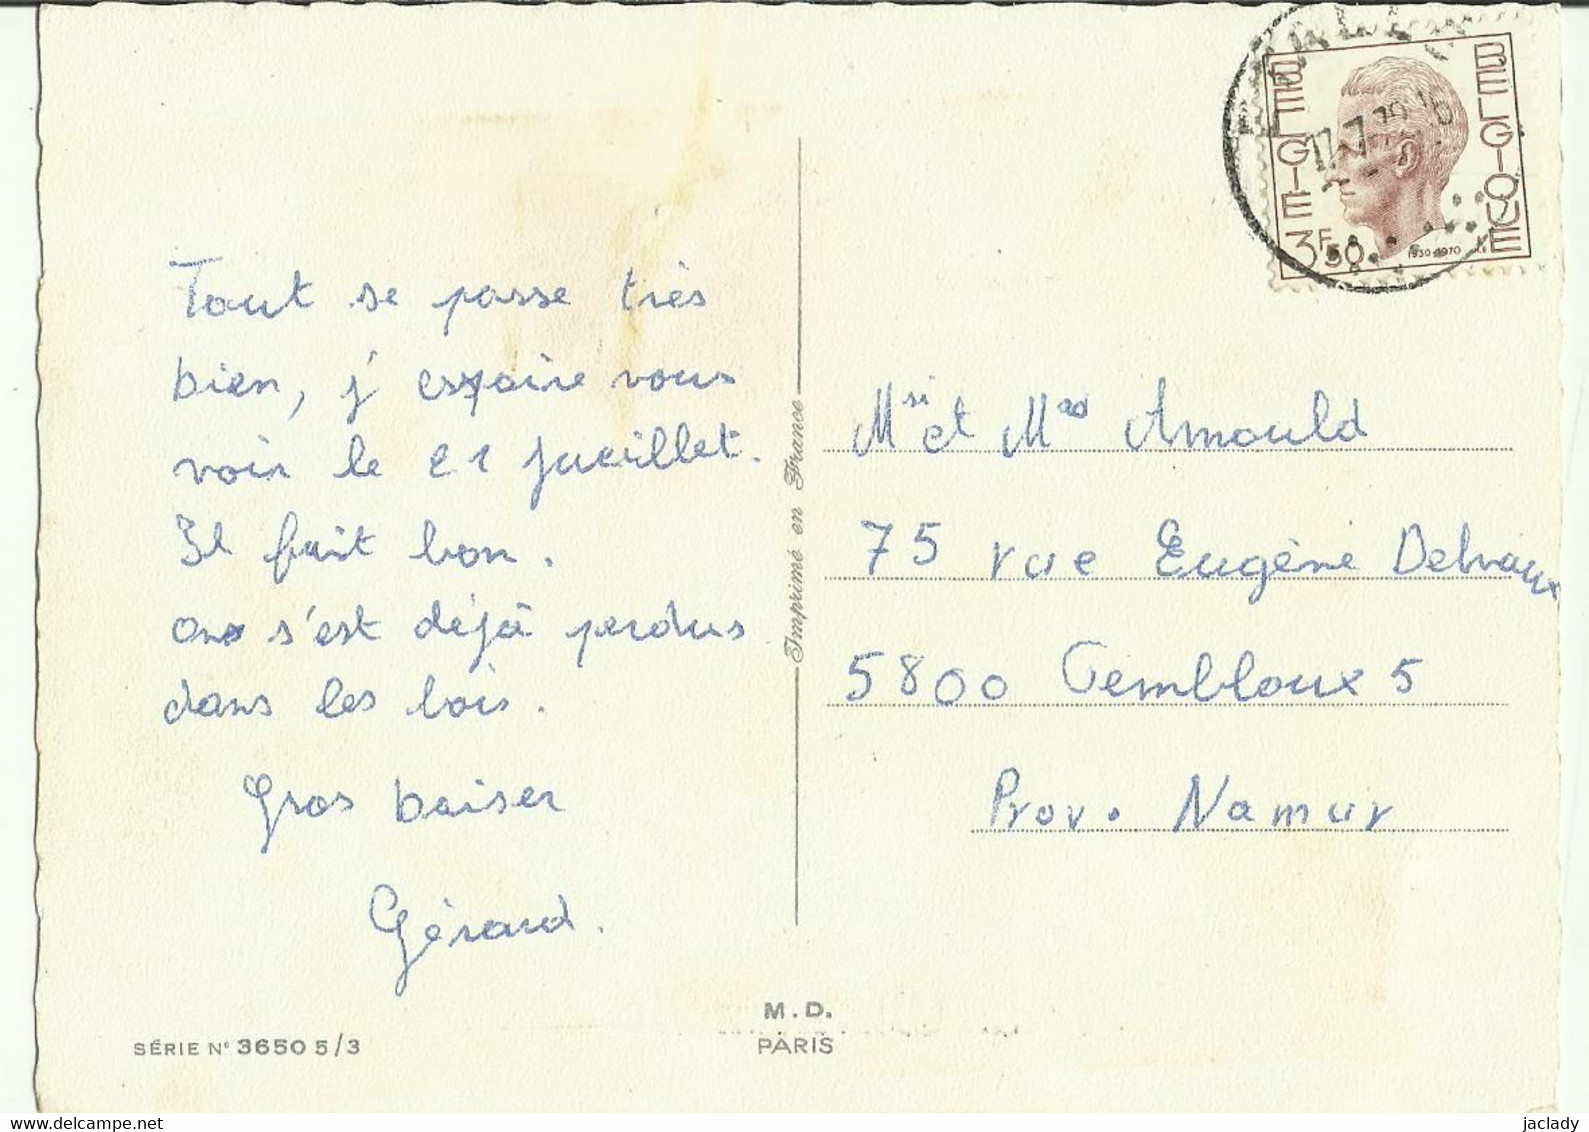 Tout se passe très
bien, j'espoire vous
voir le 21 jueillet.
Il fait bon.
ons s'est déjà perdus
dans les bois.
Gros baiser
Gérard.
SÉRIE N° 3650 5/3
Imprimé en France
M.D.
PARIS
BELGIE
BELGIQUE
3F50
1930-1970
17.7.
Msi et Mad Arnould
75 rue Eugène Delvaux
5800 Gembloux 5
Prov. Namur
jaclady